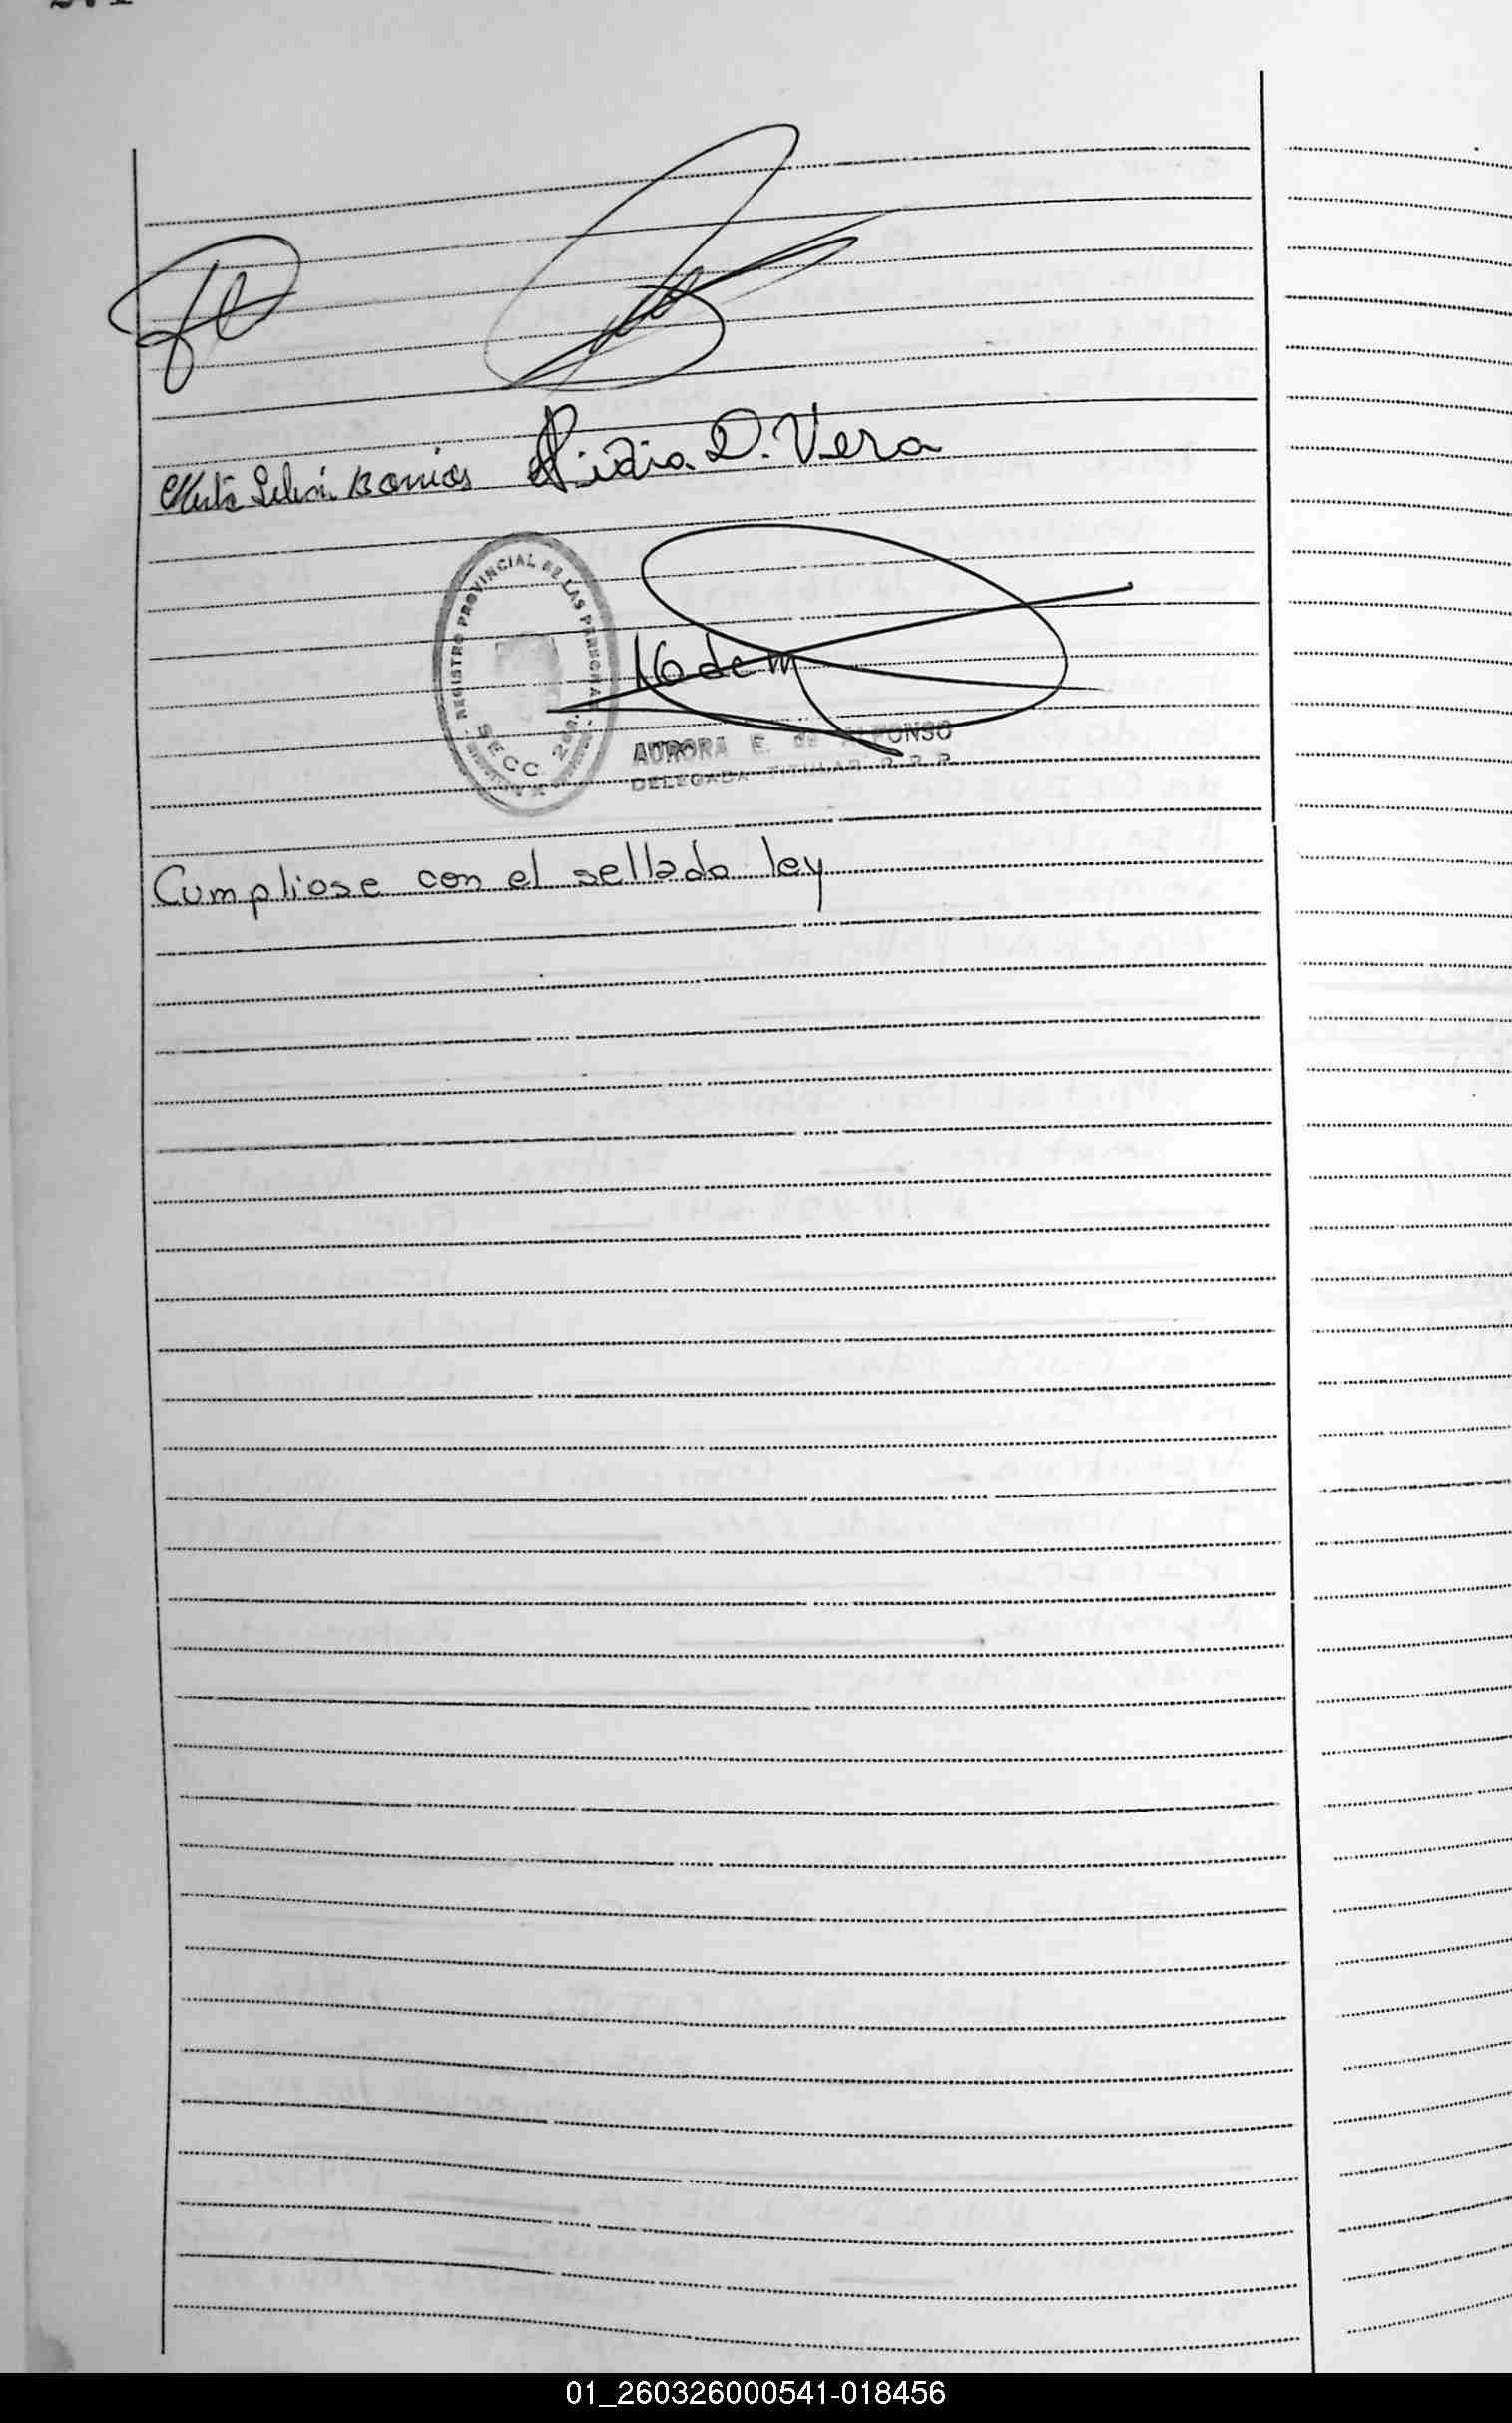 Nidia D. Vera
REGISTRO PROVINCIAL DE LAS PERSONAS
SECC. 2da.
AURORA E. de ALFONSO
DELEGADA TITULAR R. P. P.
Cumpliose con el sellado ley
01_260326000541-018456